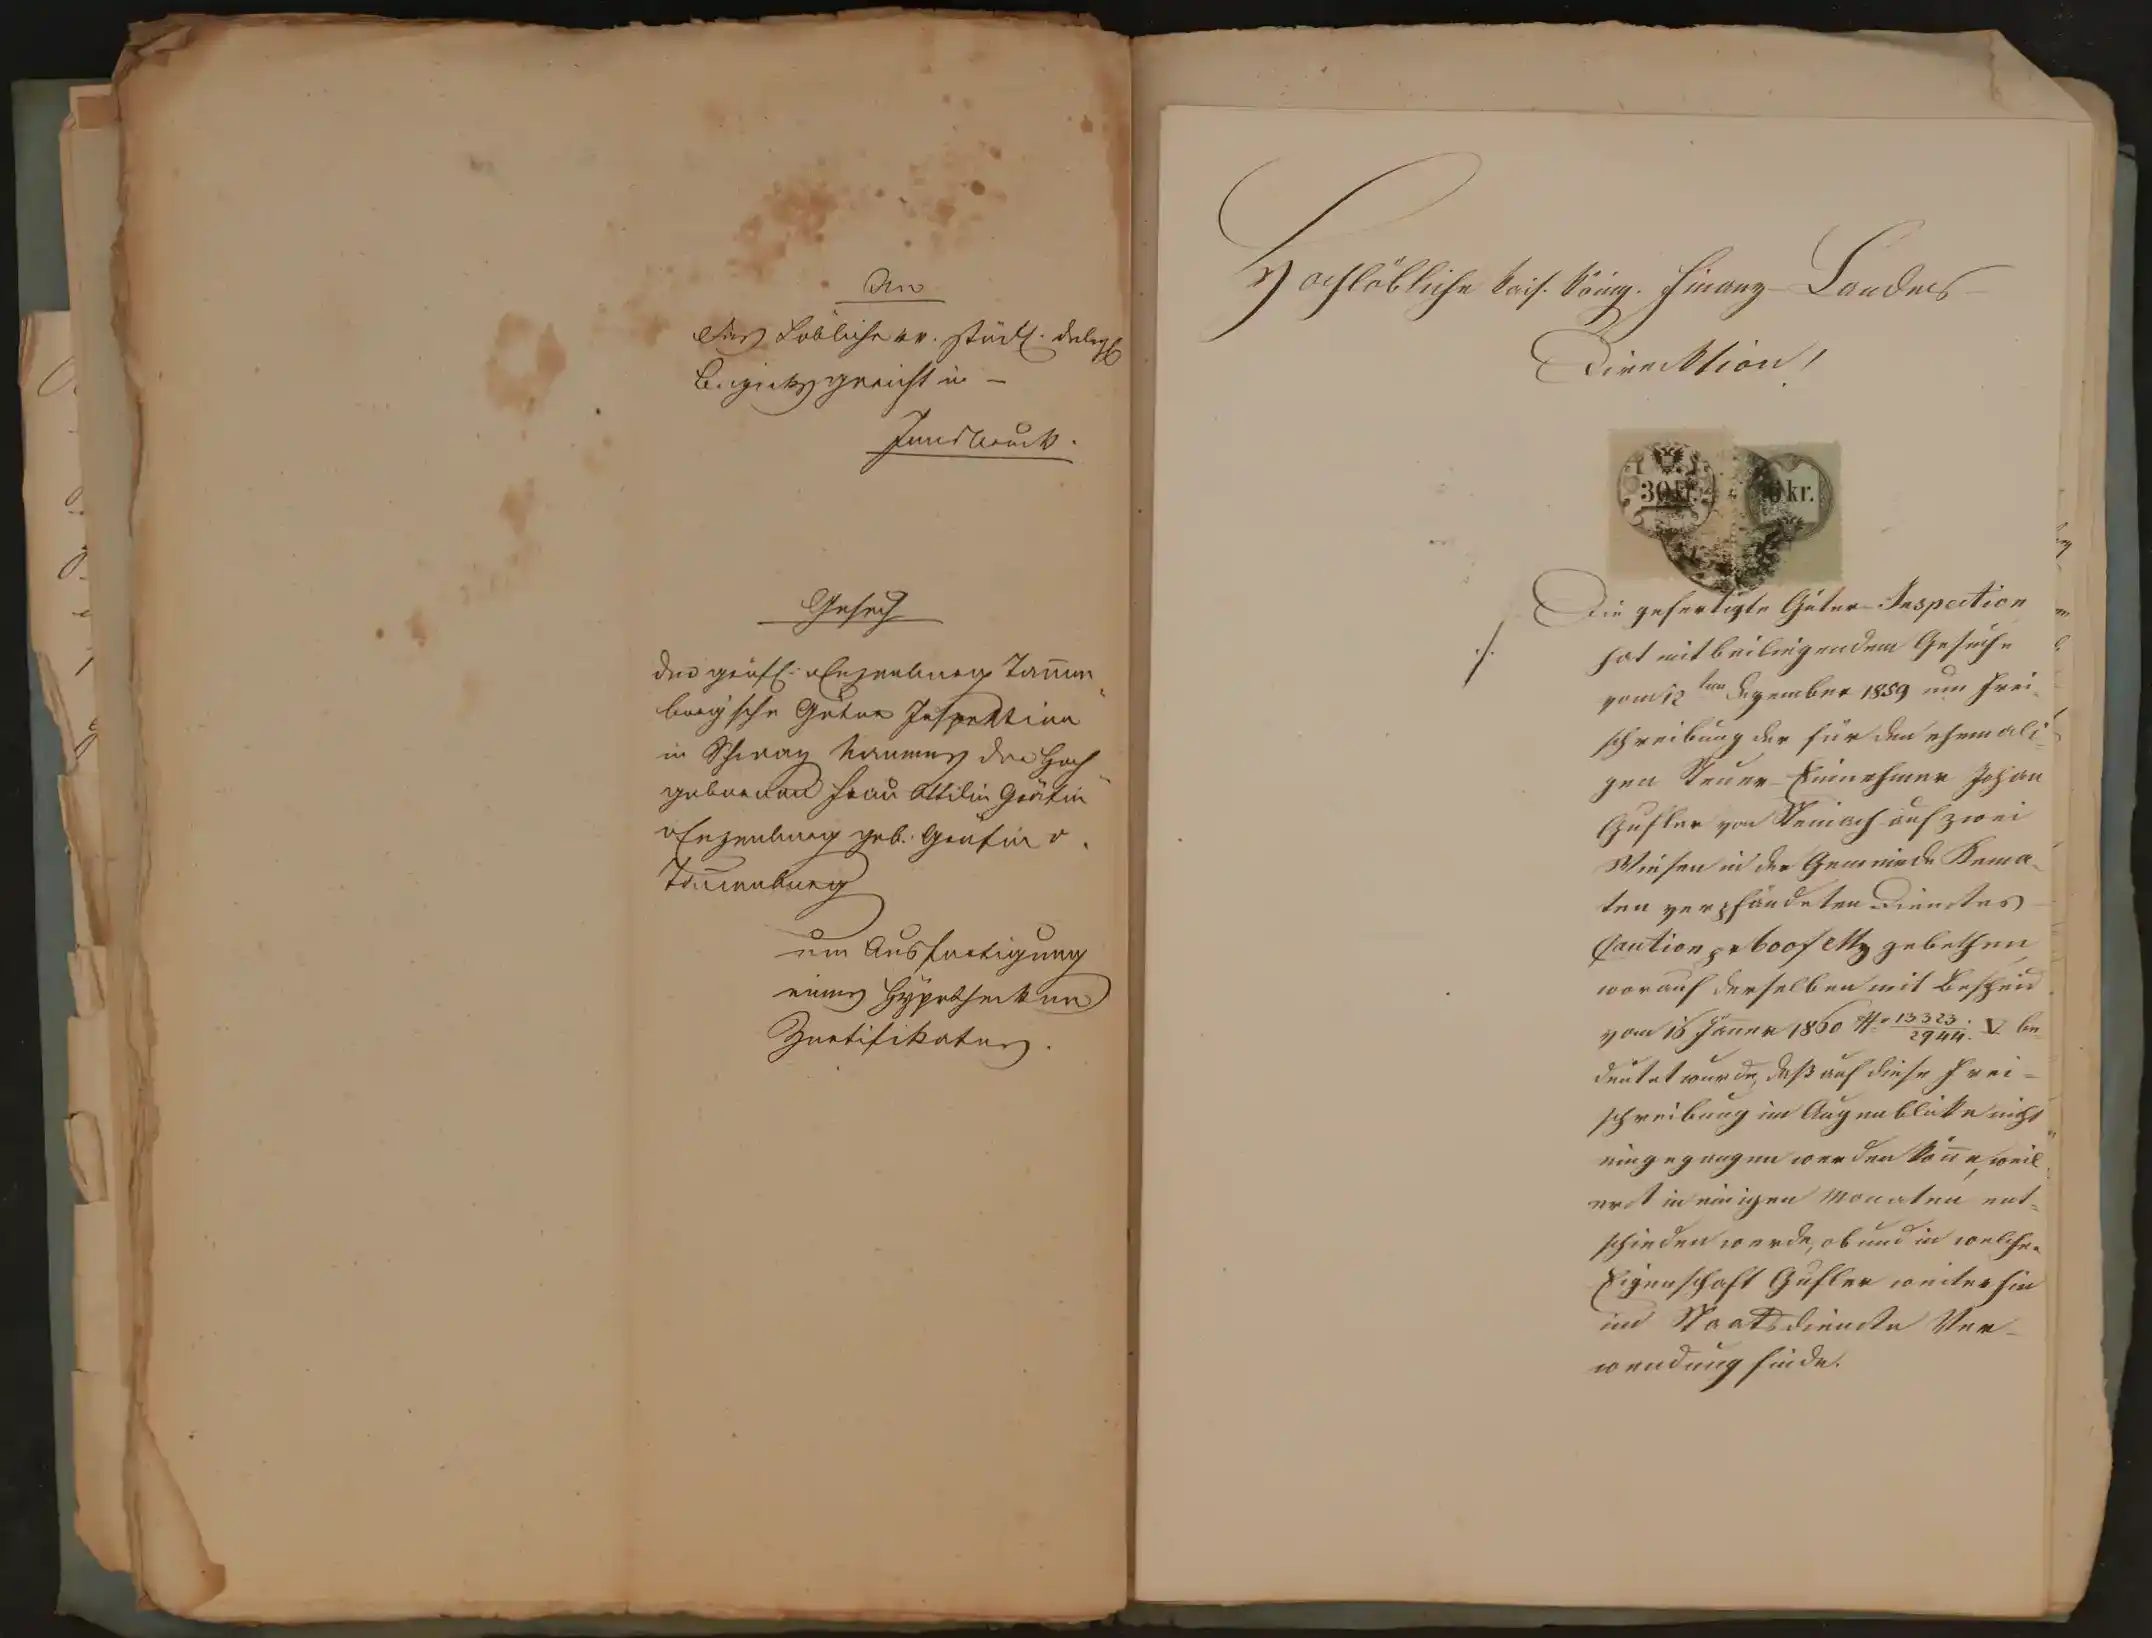 An
Das Löbliche kk. städt. delegt.
Bezirksgericht in –
Innsbruck.
Gesuch
der gräfl. v Enzenberg Tannen-
bergische Güter Inspektion
in Schwaz Namens der Hoch-
gebornen Frau Ottilie Gräfin
v Enzenberg geb. Gräfin v.
Tannenberg
um Ausfertigung
eines Hypotheken
Zertifikates.
Hochlöbliche kais. königl. Finanz-Landes-
Direktion!
30 kr.
6 kr.
./.
Die gefertigte Güter-Inspection
hat mit beiliegendem Gesuche
vom 12ten Dezember 1859 um Frei-
schreibung der für den ehemali-
gen Steuer-Einnehmer Johan
Gufler von Steinach auf zwei
Wiesen in der Gemeinde Kema-
ten verpfändeten Dienstes-
Caution pr 600 f gebethen,
worauf derselben mit Bescheid
vom 16 Jänner 1860 No 13323/2944. V. be-
deutet wurde, daß auf diese Frei-
schreibung im Augenblicke nicht
eingegangen werden könne, weil
erst in einigen Monaten ent-
schieden werde, ob und in welcher
Eigenschaft Gufler weiterhin
im Staatsdienste Ver-
wendung finde.